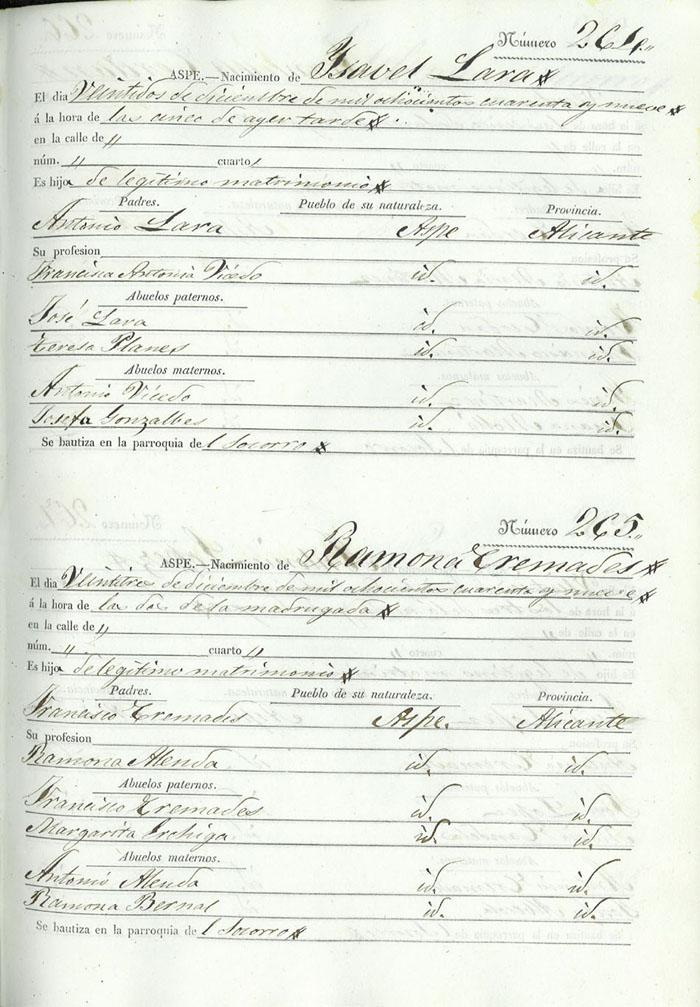 Número 264.
ASPE.—Nacimiento de Isavel Lara
El dia Veintidos de diciembre de mil ochocientos cuarenta y nueve
á la hora de las cinco de ayer tarde
en la calle de "
núm. " cuarto "
Es hija de legitimo matrimonio
Padres. Pueblo de su naturaleza. Provincia.
Antonio Lara Aspe Alicante
Su profesion
Francisca Antonia Vicedo id. id.
Abuelos paternos.
José Lara id. id.
Teresa Planes id. id.
Abuelos maternos.
Antonio Vicedo id. id.
Josefa Gonzalbes id. id.
Se bautiza en la parroquia del Socorro
Número 265.
ASPE.—Nacimiento de Ramona Cremades
El dia Veintitres de diciembre de mil ochocientos cuarenta y nueve
á la hora de la dos de la madrugada
en la calle de "
núm. " cuarto "
Es hija de legitimo matrimonio
Padres. Pueblo de su naturaleza. Provincia.
Francisco Cremades Aspe. Alicante
Su profesion
Ramona Alenda id. id.
Abuelos paternos.
Francisco Cremades id. id.
Margarita id. id.
Abuelos maternos.
Antonio Alenda id. id.
Ramona Bernal id. id.
Se bautiza en la parroquia del Socorro